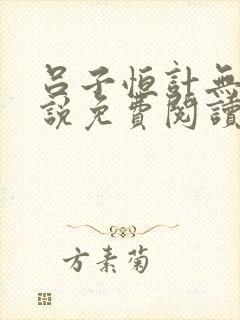 呂子恒計無
說免費閱讀
方素菊